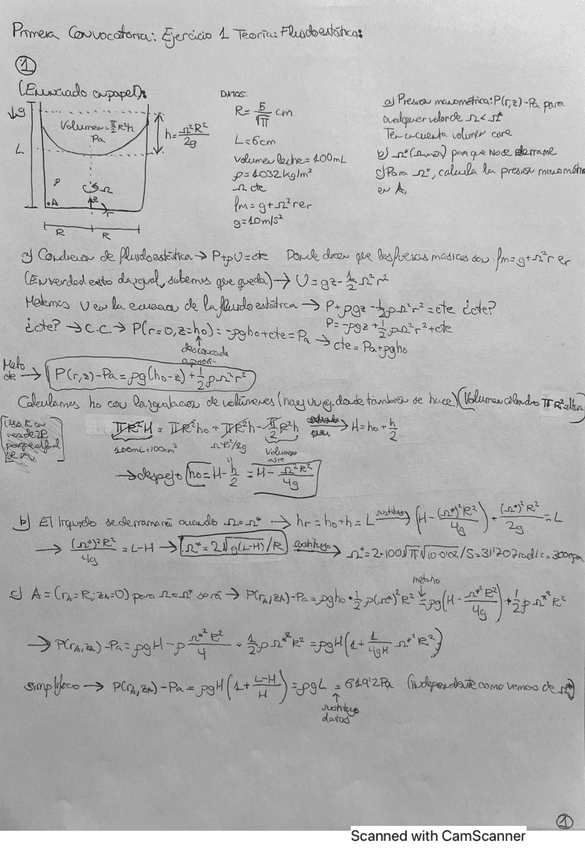 Primera Convocatoria: Ejercicio 1 Teoría: Fluidoestática:
①
(Enunciado en papel):
↓g
L
Volumen = π/2 R²h
Pa
h = Ω²R²/2g
ρ
Ω
A
r
R
R
DATOS:
R = 5/√π cm
L = 6cm
volumen leche = 100mL
ρ = 1032 kg/m³
Ω cte
fm = g + Ω² r er
g = 10 m/s²
a) Presion manométrica: P(r,z) - Pa para
cualquier valor de Ω < Ω*
Ten en cuenta volumen
b) Ω* para que no se derrame
c) Para Ω*, calcula la presion manométrica
en A.
a) Condicion de fluidoestática → P + ρU = cte Donde dicen que las fuerzas másicas son fm = g + Ω² r er
(En verdad esto da igual, sabemos que queda) → U = gz - 1/2 Ω² r²
Metemos U en la ecuacion de la fluidoestática → P + ρgz - 1/2 ρΩ²r² = cte ¿cte?
P = -ρgz + 1/2 ρΩ²r² + cte
¿cte? → C.C → P(r=0, z=h₀) = -ρgh₀ + cte = Pa → cte = Pa + ρgh₀
Meto cte → P(r,z) - Pa = ρg(h₀ - z) + 1/2 ρΩ²r²
Calculamos h₀ con la de volúmenes (hay donde también se hace) (Volumen cilindro πR² altura)
πR²H = πR²h₀ + πR²h - π/2 R²h → H = h₀ + h/2
100mL = 100cm³
Ω²R²/2g
Volumen aire
→ despejo h₀ = H - h/2 = H - Ω²R²/4g
b) El líquido se derramará cuando Ω = Ω* → hr = h₀ + h = L → (H - (Ω*)²R²/4g) + (Ω*)²R²/2g = L
→ (Ω*)²R²/4g = L - H → Ω* = 2√g(L-H) / R → Ω* = 2·100√π√10·0'02/5 = 31'707 rad/s = 300rpm
c) A = (rA = R; zA = 0) para Ω = Ω* será → P(rA, zA) - Pa = ρgh₀ + 1/2 ρ(Ω*)²R² = ρg(H - Ω*²R²/4g) + 1/2 ρΩ*²R²
meto h₀
→ P(rA, zA) - Pa = ρgH - ρ Ω*²R²/4 + 1/2 ρΩ*²R² = ρgH(1 + 1/4gH Ω*²R²)
Simplifico → P(rA, zA) - Pa = ρgH(1 + L-H/H) = ρgL = 619'2Pa (independiente como vemos de Ω*)
sustituyo
datos
①
Scanned with CamScanner